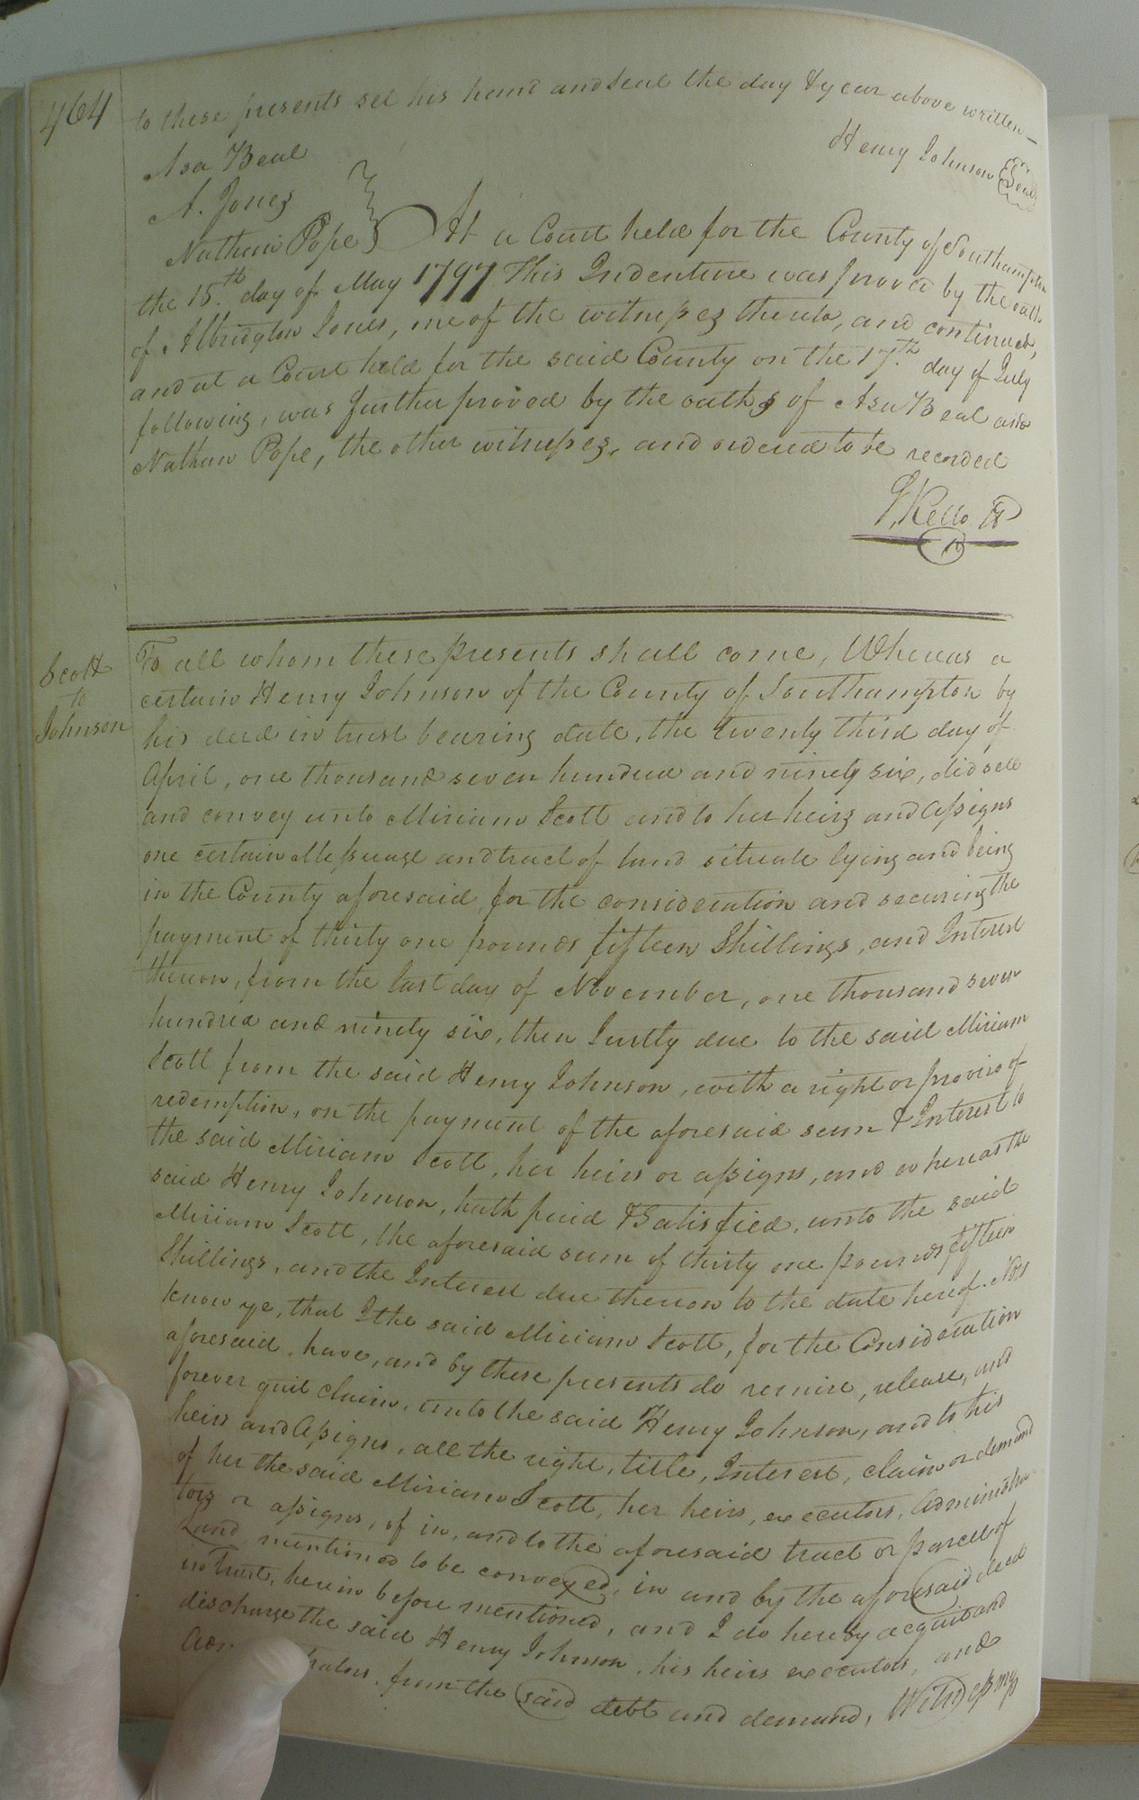 464
to these presents set his hand and seal the day & year above written—
Henry Johnson Seal
Asa Beal
A. Jones
Nathan Pope
At a Court held for the County of Southampton
the 15.th day of May 1797 This Indenture was proved by the oath
of Albridgton Jones, one of the witnesses thereto, and continued,
and at a Court held for the said County on the 17.th day of July
following, was further proved by the oaths of Asa Beal and
Nathan Pope, the other witnesses, and ordered to be recorded
Kello
Scott
to
Johnson
To all whom these presents shall come, Whereas a
certain Henry Johnson of the County of Southampton by
his deed in trust bearing date, the twenty third day of
April, one thousand seven hundred and ninety six, did sell
and convey unto Miriam Scott and to her heirs and assigns
one certain Messuage and tract of land situate lying and being
in the County aforesaid, for the consideration and securing the
payment of thirty one pounds fifteen Shillings, and Interest
thereon, from the last day of November, one thousand seven
hundred and ninety six, then Justly due to the said Miriam
Scott from the said Henry Johnson, with a right or proviso of
redemption, on the payment of the aforesaid sum & Interest to
the said Miriam Scott, her heirs or assigns, and whereas the
said Henry Johnson, hath paid & Satisfied, unto the said
Miriam Scott, the aforesaid sum of thirty one pounds fifteen
Shillings, and the Interest due thereon to the date hereof. Now
know ye, that I the said Miriam Scott, for the Consideration
aforesaid, have, and by these presents do remise, release, and
forever quit claim, unto the said Henry Johnson, and to his
heirs and assigns, all the right, title, Interest, claim or demand
of her the said Miriam Scott, her heirs, executors, Administra-
tors or assigns, of in, and to the aforesaid tract or parcel of
Land mentioned to be conveyed, in and by the aforesaid deed
in trust, herein before mentioned, and I do hereby acquit and
discharge the said Henry Johnson, his heirs executors, and
from the said debt and demand, Witness my